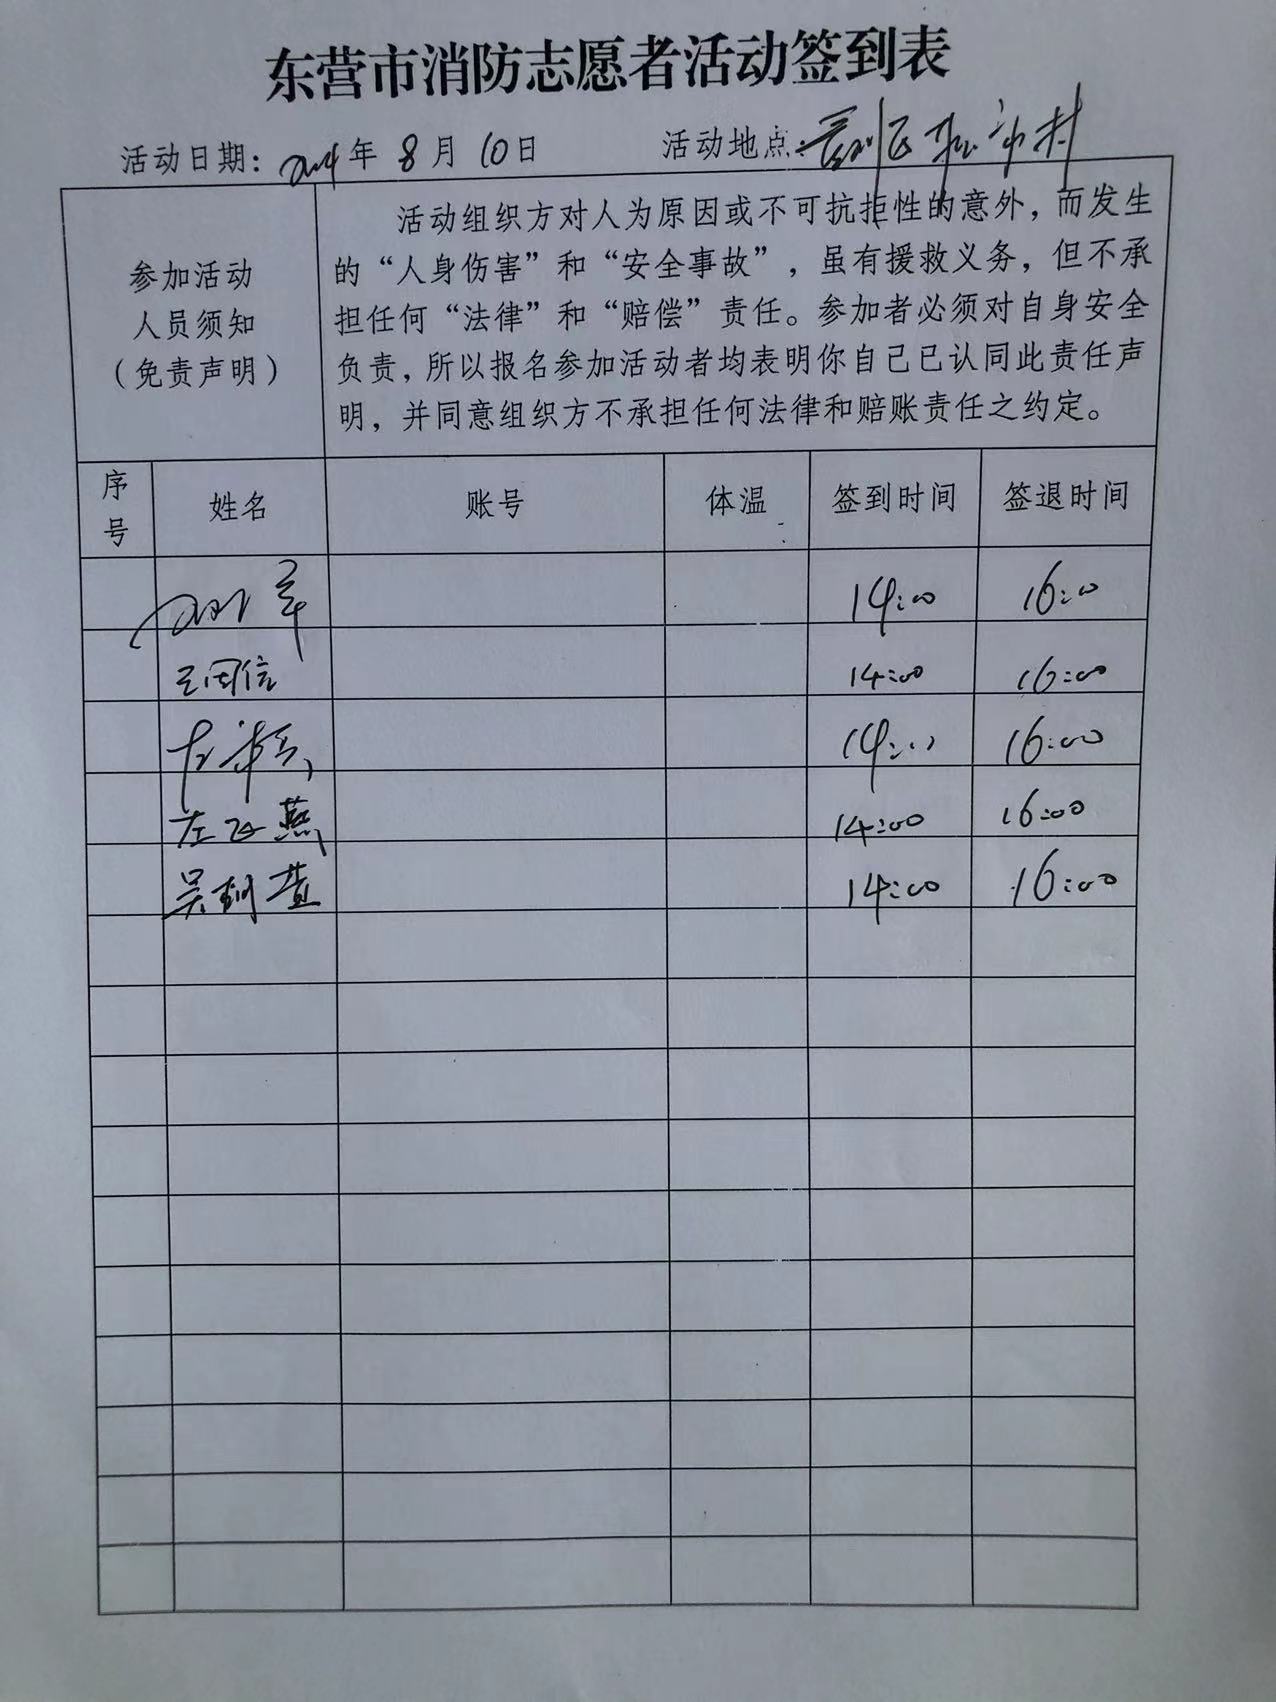 东营市消防志愿者活动签到表
活动日期：2024年8月10日 活动地点：区 村
参加活动
人员须知
（免责声明）
活动组织方对人为原因或不可抗拒性的意外，而发生
的“人身伤害”和“安全事故”，虽有援救义务，但不承
担任何“法律”和“赔偿”责任。参加者必须对自身安全
负责，所以报名参加活动者均表明你自己已认同此责任声
明，并同意组织方不承担任何法律和赔账责任之约定。
序号 姓名 账号 体温 签到时间 签退时间
14:00 16:00
王国信 14:00 16:00
14:00 16:00
左 燕 14:00 16:00
吴 14:00 16:00